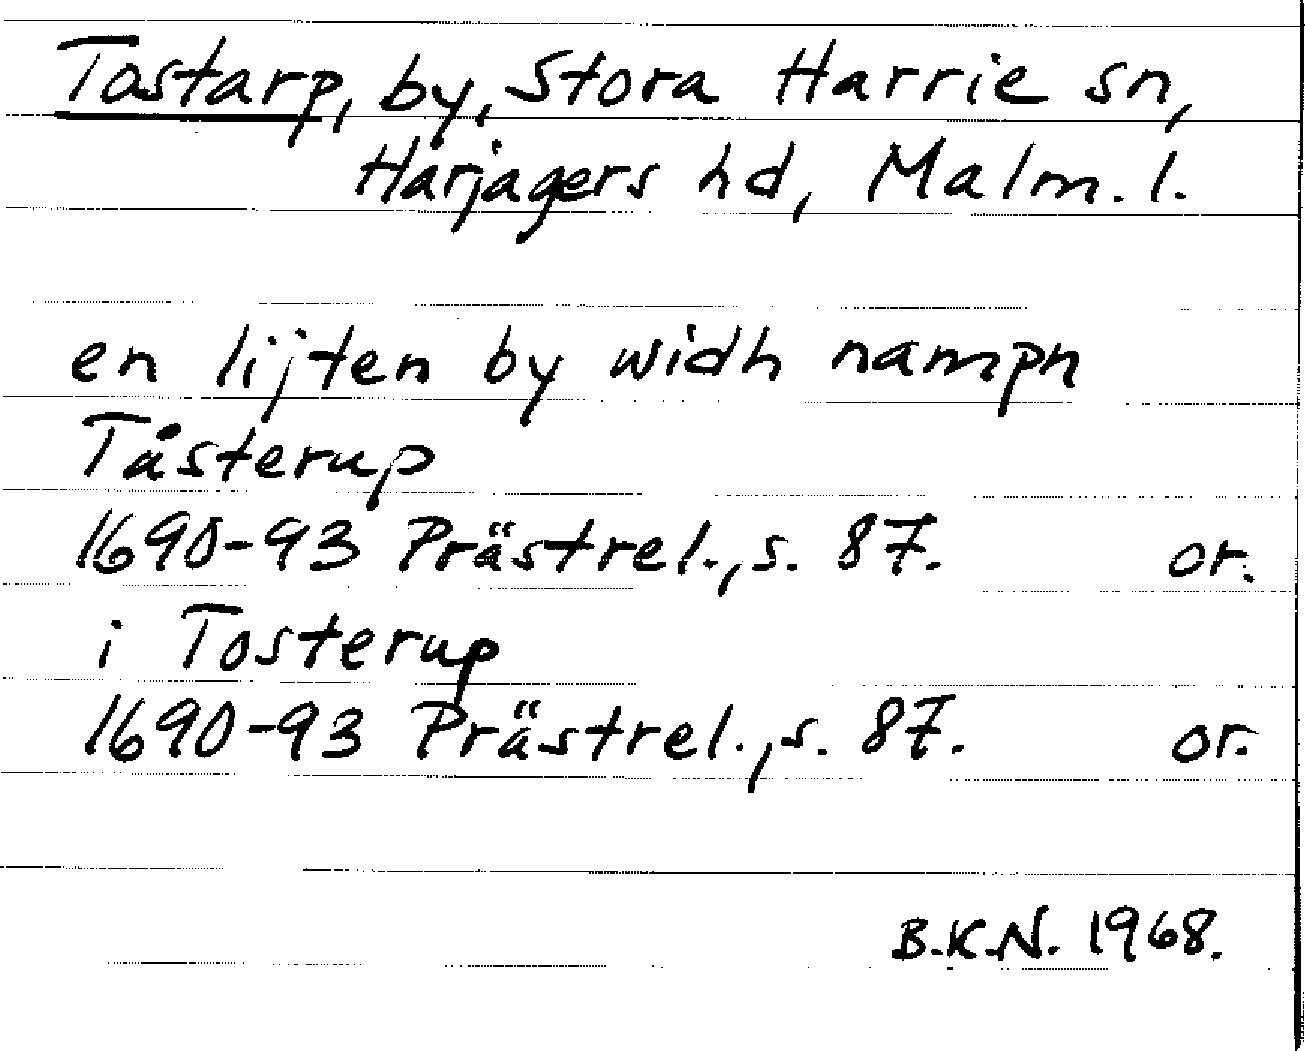 Tostarp, by, Stora Harrie sn,
Harjagers hd, Malm. l.
en lijten by widh nampn
Tåsterup
1690-93 Prästrel., s. 87. or.
i Tosterup
1690-93 Prästrel., s. 87. or.
B.K.N. 1968.